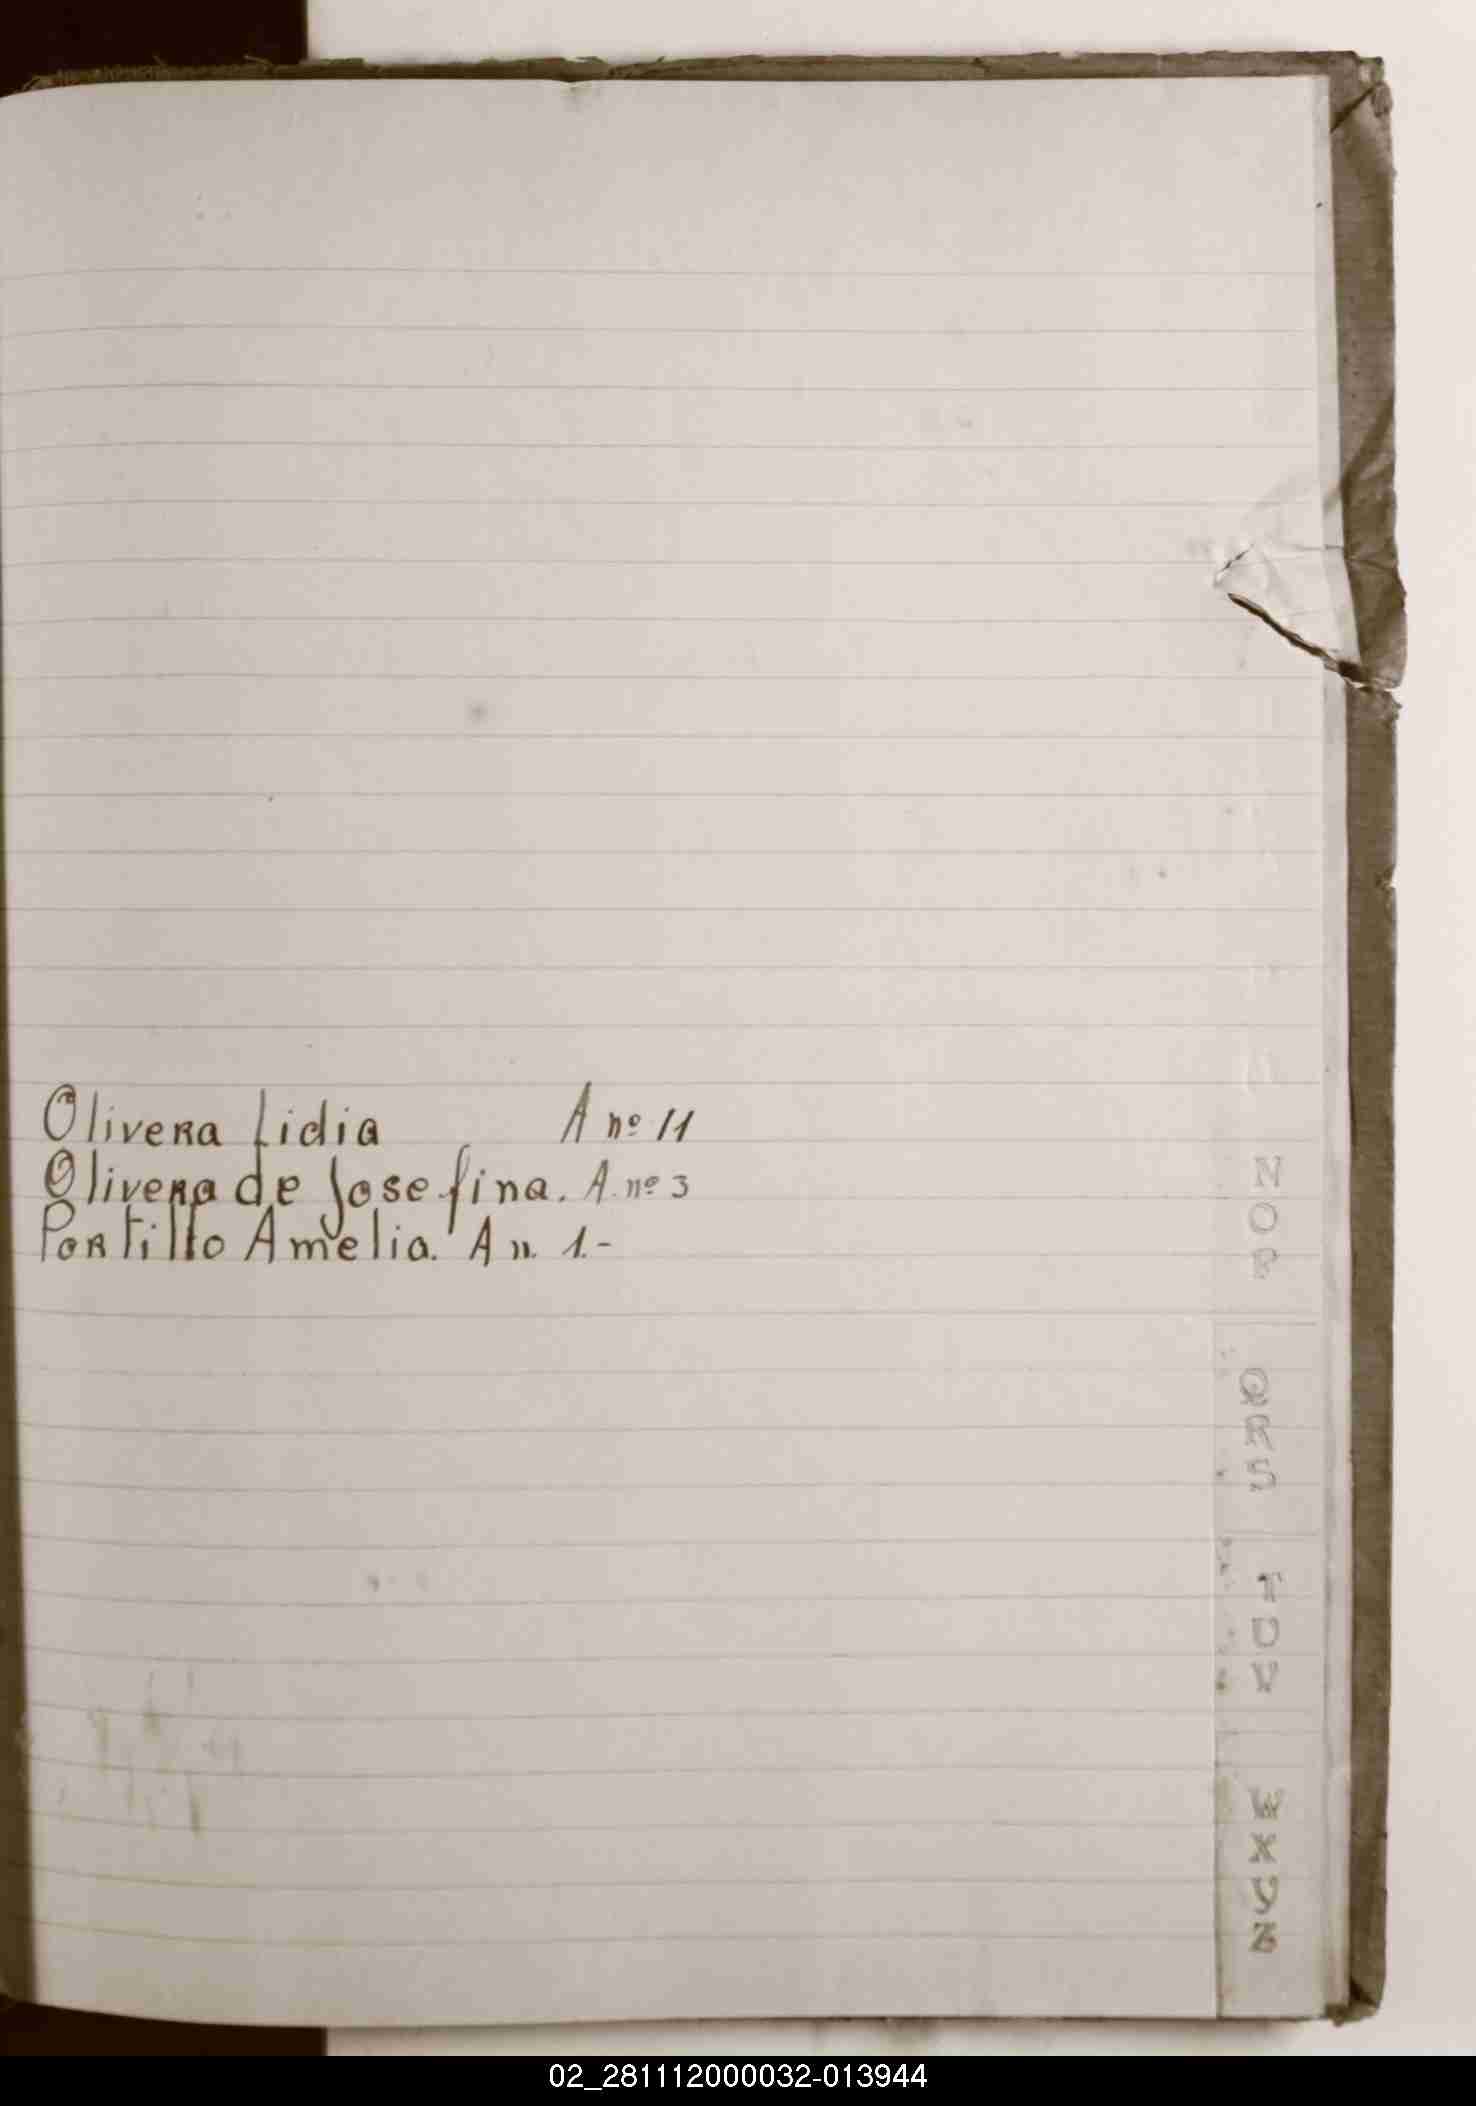 Olivera Lidia A nº 11
Olivera de Josefina. A. nº 3
Portillo Amelia. A n. 1.-
N
O
P
Q
R
S
T
U
V
W
X
Y
Z
02_281112000032-013944